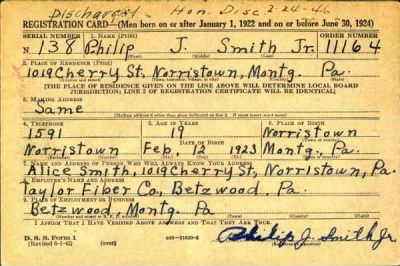 Discharged Hon. Disc 2-24-46
REGISTRATION CARD—(Men born on or after January 1, 1922 and on or before June 30, 1924)
SERIAL NUMBER 1. NAME (Print) ORDER NUMBER
N 138 Philip J. Smith Jr. 11164
2. PLACE OF RESIDENCE (Print)
1019 Cherry St, Norristown, Montg. Pa.
[THE PLACE OF RESIDENCE GIVEN ON THE LINE ABOVE WILL DETERMINE LOCAL BOARD
JURISDICTION; LINE 2 OF REGISTRATION CERTIFICATE WILL BE IDENTICAL]
3. MAILING ADDRESS
Same
4. TELEPHONE 5. AGE IN YEARS 6. PLACE OF BIRTH
1591 19 Norristown
DATE OF BIRTH
Norristown Feb, 12 1923 Montg., Pa.
7. NAME AND ADDRESS OF PERSON WHO WILL ALWAYS KNOW YOUR ADDRESS
Alice Smith, 1019 Cherry St, Norristown, Pa.
8. EMPLOYER'S NAME AND ADDRESS
Taylor Fiber Co, Betzwood, Pa.
9. PLACE OF EMPLOYMENT OR BUSINESS
Betzwood, Montg. Pa
I AFFIRM THAT I HAVE VERIFIED ABOVE ANSWERS AND THAT THEY ARE TRUE.
D. S. S. Form 1
(Revised 6-1-42) (over)
Philip J. Smith Jr